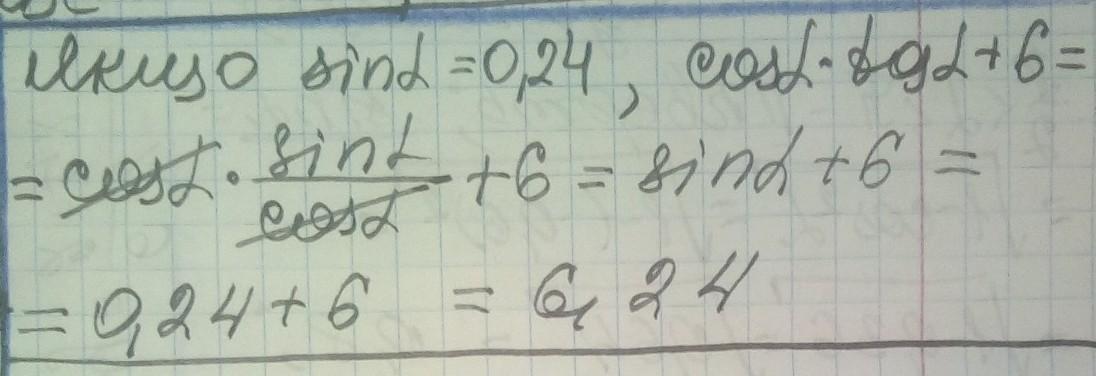 Якщо sinα = 0,24, cosα · tgα + 6 =
= cosα · sinα/cosα + 6 = sinα + 6 =
= 0,24 + 6 = 6,24